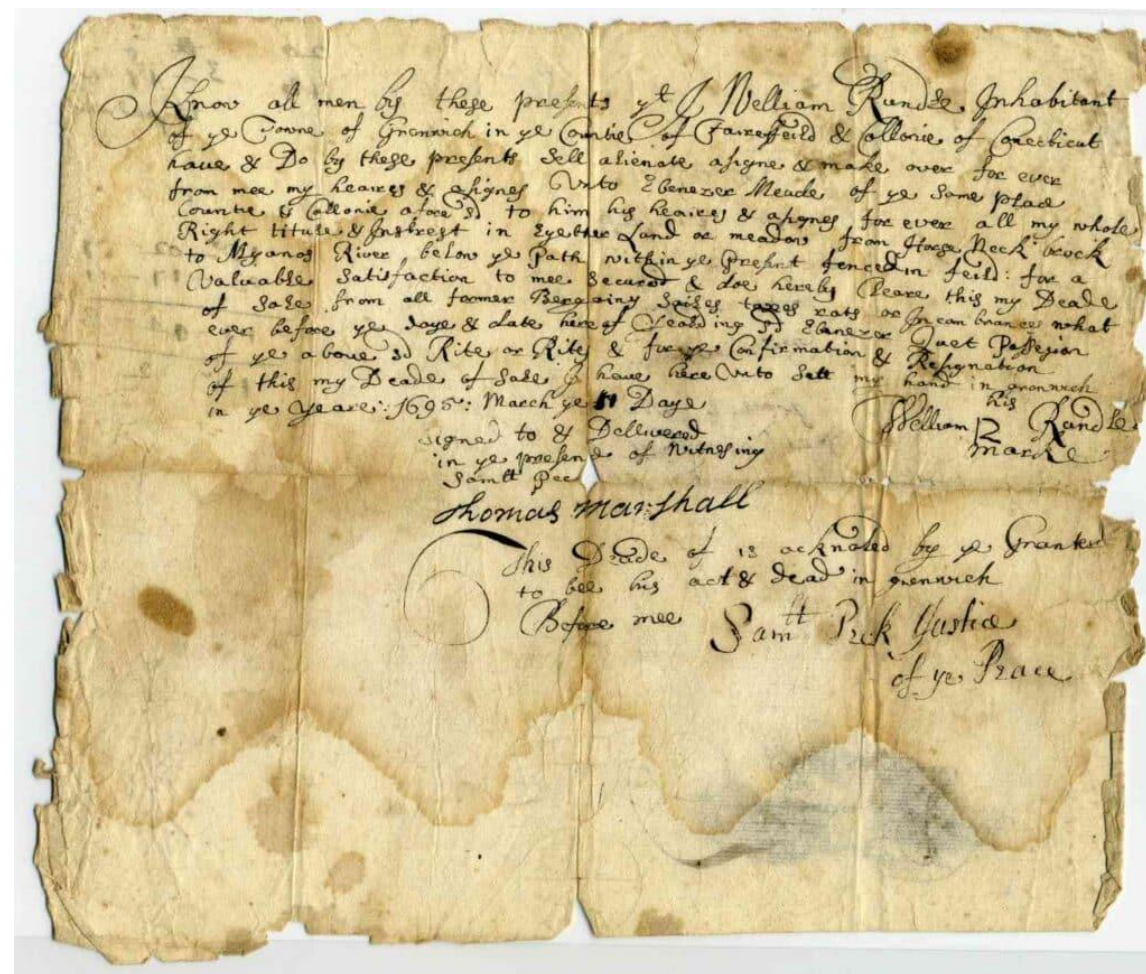 Know all men by these presents yt I William Rundle Inhabitant
of ye Towne of Grenwich in ye Countie of Faireffeild & Collonie of Conecticut
have & Do by these presents Sell alienate asigne & make over for ever
from mee my heaires & asignes Unto Ebenezer Meade of ye Same place
Countie & Collonie afore sd to him his heaires & asignes for ever all my whole
Right titule & Instrest in Eyether Land or meadow from Horse Neck brock
to Myanos River below ye Path within ye Present fenced in feild: for a
Valuable Satisfaction to mee Secured & doe hereby Cleare this my Deade
of Sale from all former Bergainy Sailes taxes rats or Incanbrance what
ever before ye daye & date here of sd Ebenezer Quet Possesion
of ye above sd Rite or Rites & for ye Confirmation & Resignation
of this my Deade of Sale I have here Unto Sett my hand in grenwich
in ye Yeare: 1695: March ye 11 Daye
his
William R Rundle
marke
signed to & Dellivered
in ye presence of Witnesing
Samll Pec
Thomas Marshall
This Deade of is acknoled by ye Granter
to bee his act & dead in grenwich
Before mee Samll Peck Justice
of ye Peace